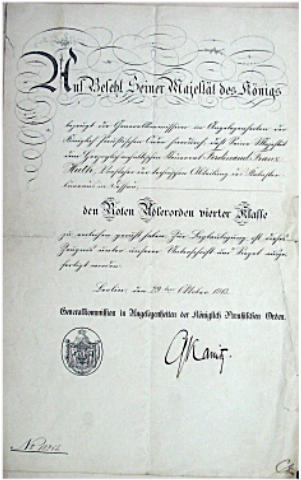 Auf Befehl Seiner Majestät des Königs
bezeugt die Generalkommission in Angelegenheiten der
Königlich Preußischen Orden hierdurch, daß Seine Majestät
dem Herzoglich Ferdinand Franz
Huth, Vorsteher der Abteilung
in Dessau,
den Roten Adlerorden vierter Klasse
zu verleihen geruht haben. Zur Beglaubigung ist dieses
Zeugnis unter unserer Unterschrift und Siegel ausge-
fertigt worden.
Berlin, den 29ten Oktober
Generalkommission in Angelegenheiten der Königlich Preußischen Orden.